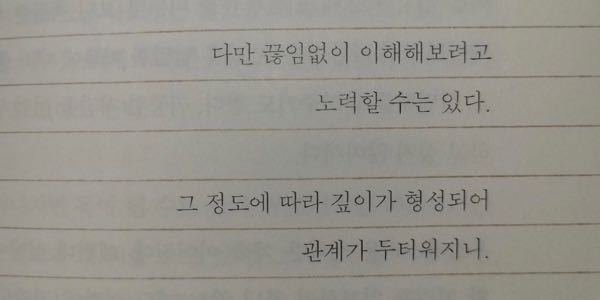 다만 끊임없이 이해해보려고
노력할 수는 있다.
그 정도에 따라 깊이가 형성되어
관계가 두터워지니.